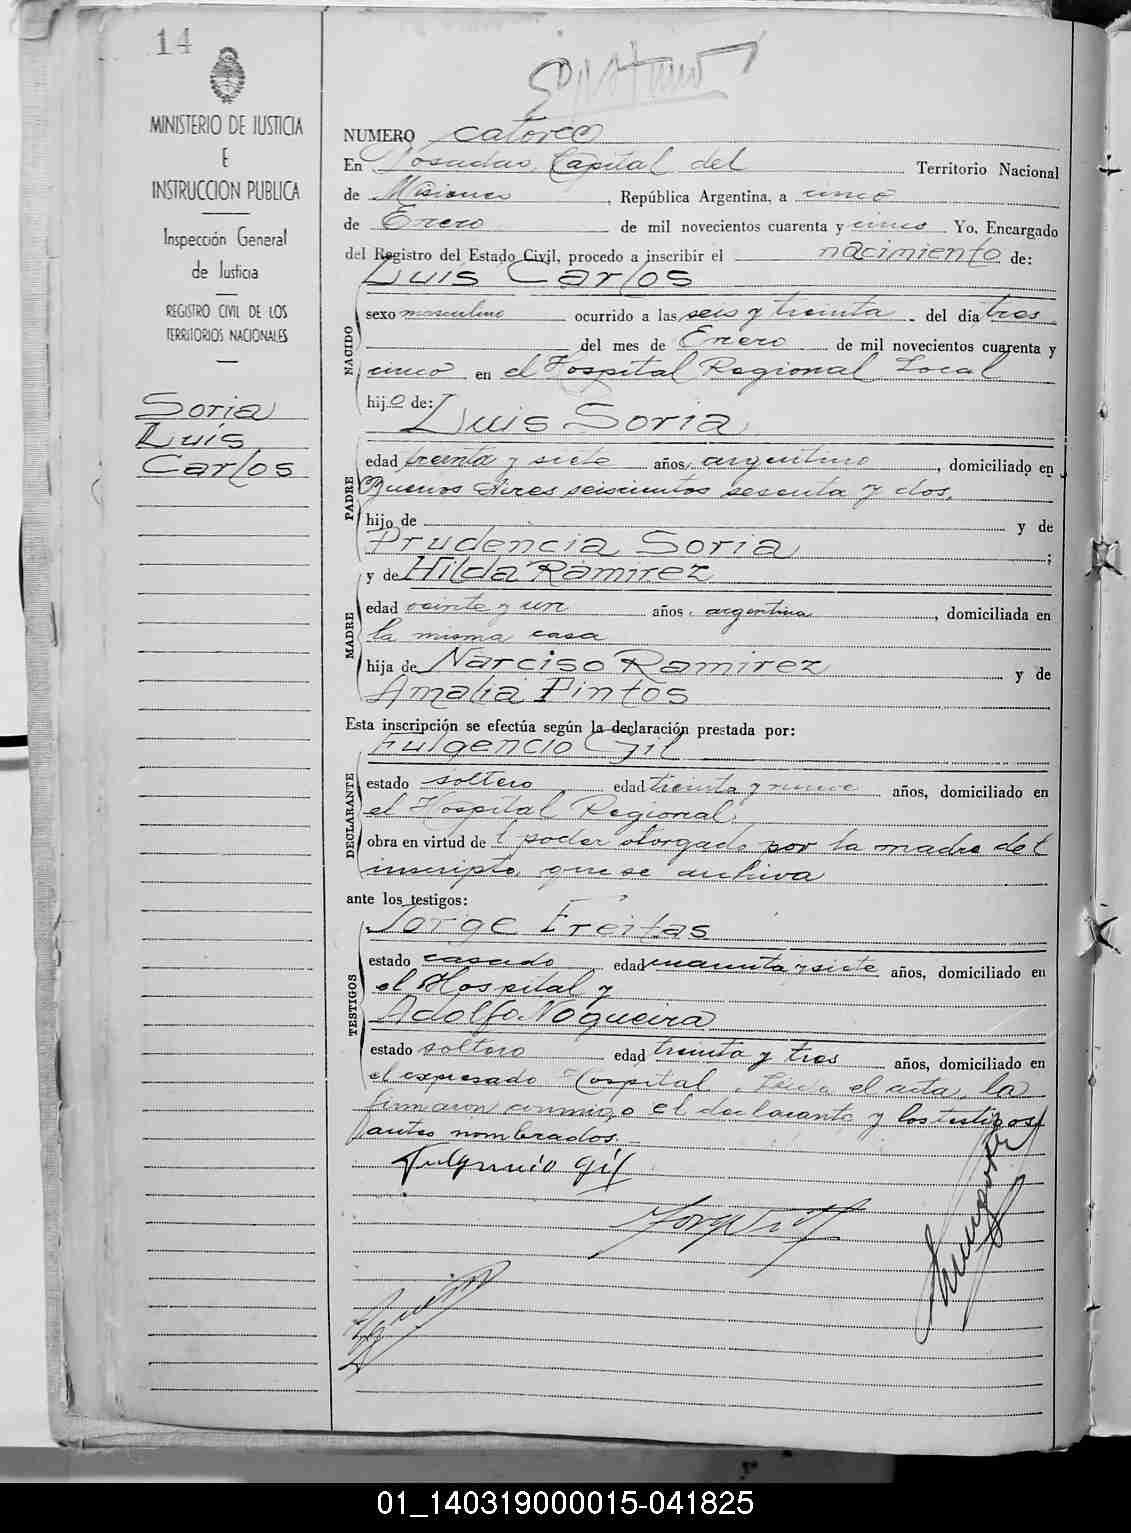 14
MINISTERIO DE JUSTICIA
E
INSTRUCCIÓN PUBLICA
Inspección General
de Justicia
REGISTRO CIVIL DE LOS
TERRITORIOS NACIONALES
Soria
Luis
Carlos
NUMERO catorce
En Posadas, Capital del Territorio Nacional
de Misiones, República Argentina, a cinco
de Enero de mil novecientos cuarenta y cinco Yo, Encargado
del Registro del Estado Civil, procedo a inscribir el nacimiento de:
Luis Carlos
NACIDO
sexo masculino ocurrido a las seis y treinta del día tres
del mes de Enero de mil novecientos cuarenta y
cinco en el Hospital Regional Local
hijo de:
Luis Soria
PADRE
edad treinta y siete años, argentino, domiciliado en
Buenos Aires seiscientos sesenta y dos,
hijo de y de
Prudencia Soria;
y de Hilda Ramirez
MADRE
edad veinte y un años, argentina, domiciliada en
la misma casa
hija de Narciso Ramirez y de
Amalia Pintos
Esta inscripción se efectúa según la declaración prestada por:
Fulgencio Gil
DECLARANTE
estado soltero edad treinta y nueve años, domiciliado en
el Hospital Regional,
obra en virtud del poder otorgado por la madre del
inscripto, que se archiva
ante los testigos:
Jorge Freitas
TESTIGOS
estado casado edad cuarenta y siete años, domiciliado en
el Hospital y
Adolfo Nogueira
estado soltero edad treinta y tres años, domiciliado en
el expresado Hospital. Leida el acta, la
firmaron conmigo el declarante y los testigos
antes nombrados.
Fulgencio Gil
01_140319000015-041825